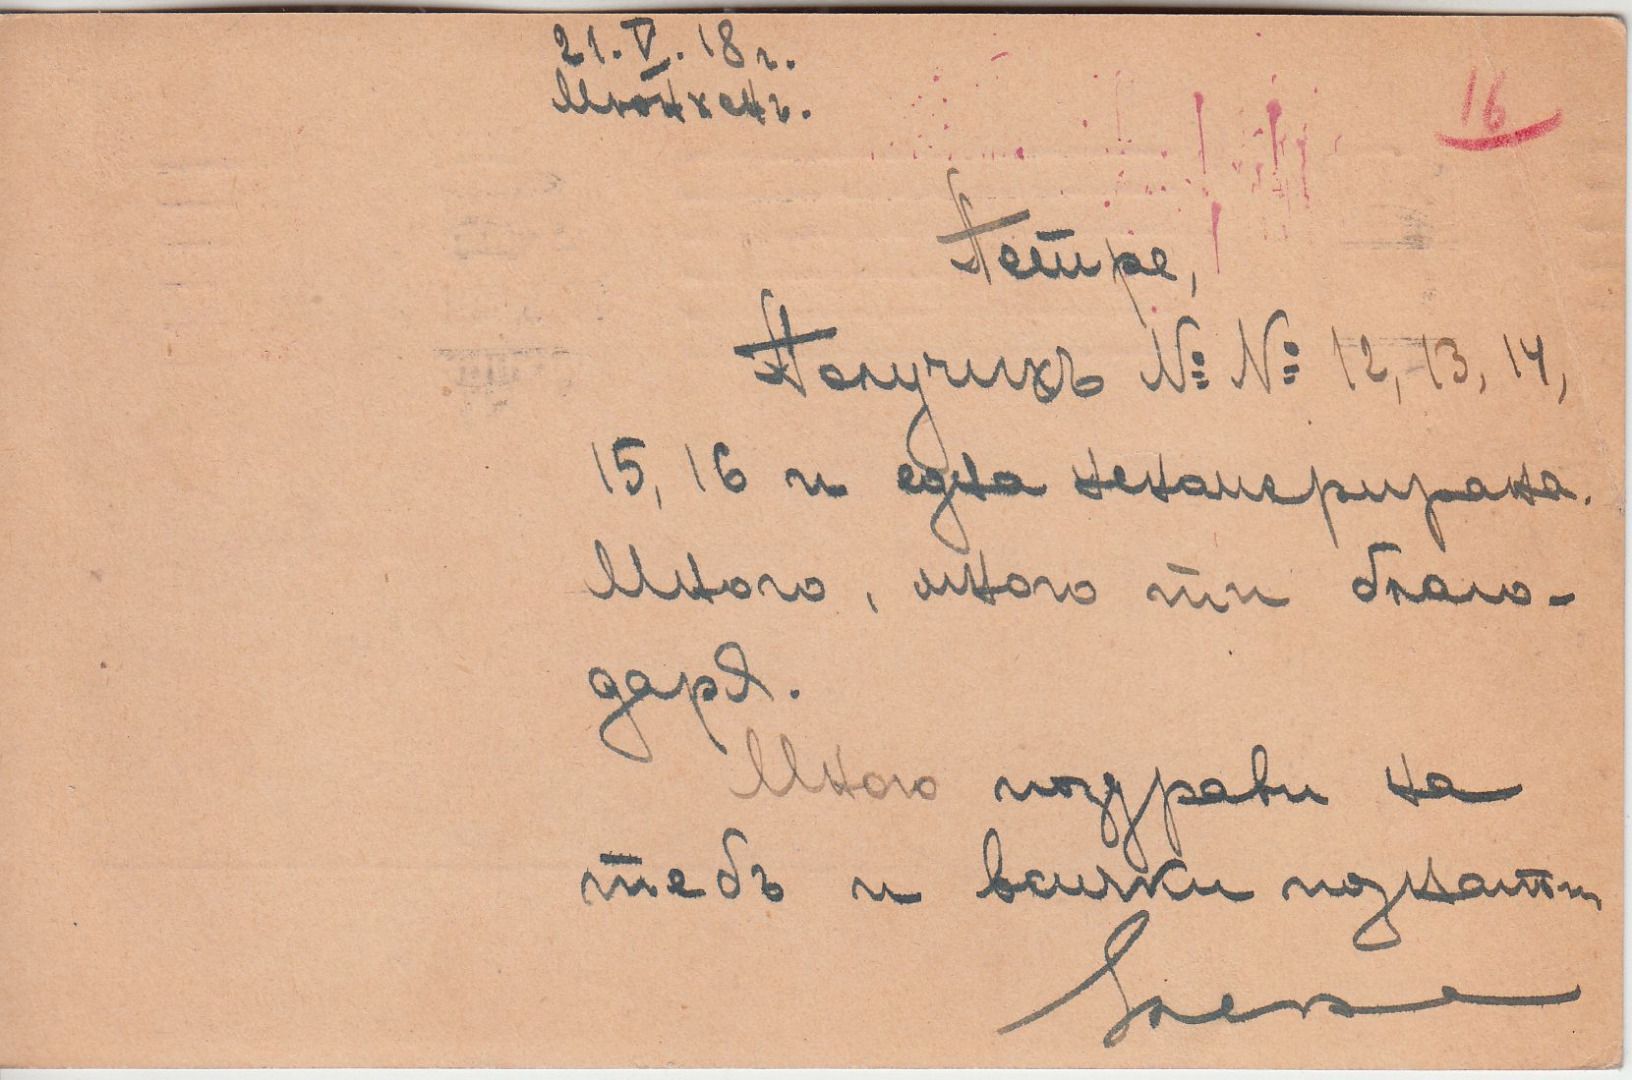 21.V.18 г.
Мюнхенъ.
16
Петре,
Получихъ №: №: 12, 13, 14,
15, 16 и една неномерирана.
Много, много ти благо-
даря.
Много поздрави на
тебъ и всички познати